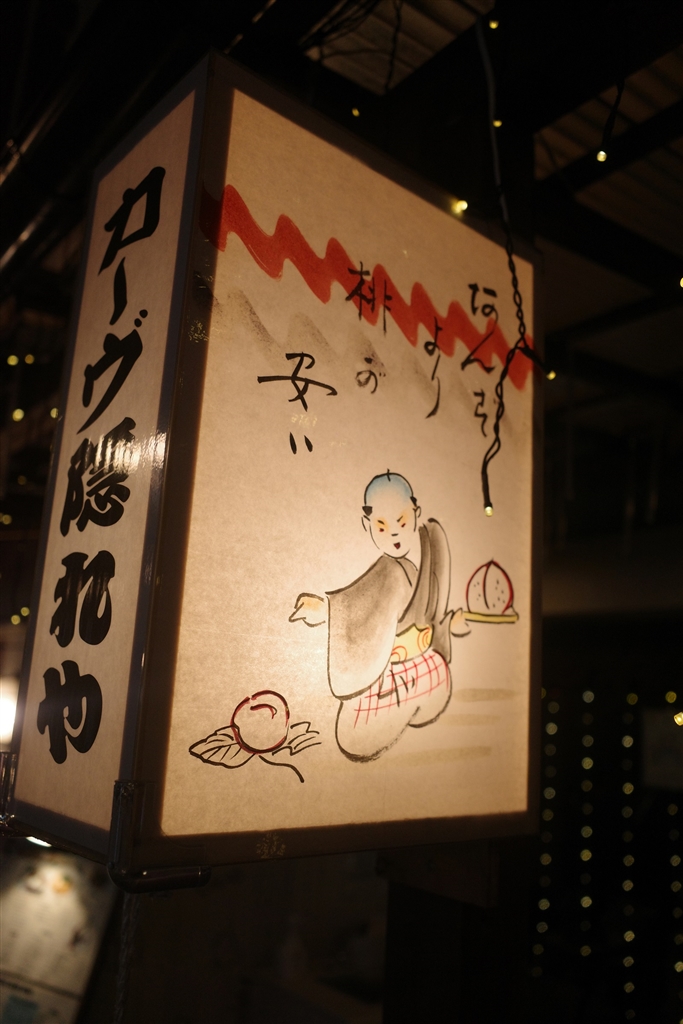 カーヴ隠れや
なんぞ
より
桃が
安い